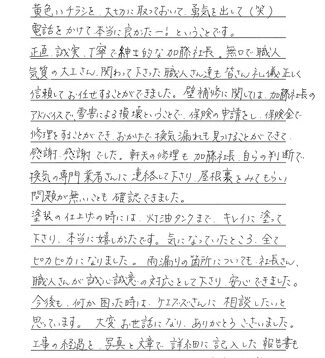 黄色いチラシを、大切に取っておいて、勇気を出して（笑）
電話をかけて本当に良かったー！ということです。
正直、誠実、丁寧で紳士的な加藤社長。無口で職人
気質の大工さん、関わって下さった職人さん達も皆さん礼儀正しく
信頼してお任せすることができました。壁補修に関しては、加藤社長の
アドバイスで、雪害による損壊ということで、保険の申請をし、保険金で
修理をすることができ、おかげで換気漏れも見つけることができて
感謝、感謝でした。軒天の修理も、加藤社長、自らの判断で、
換気の専門業者さんに連絡して下さり、屋根裏をみてもらい
問題が無いことも確認できました。
塗装の仕上げの時には、灯油タンクまで、キレイに塗って
下さり、本当に嬉しかったです。気になっていたところ、全て
ピカピカになりました。雨漏りの箇所についても、社長さん、
職人さんが誠心誠意の対応をして下さり、安心できました。
今後も、何か困った時は、ケエスさんに相談したいと
思っています。大変お世話になり、ありがとうございました。
工事の経過を、写真と文章で、詳細に記入した報告書も